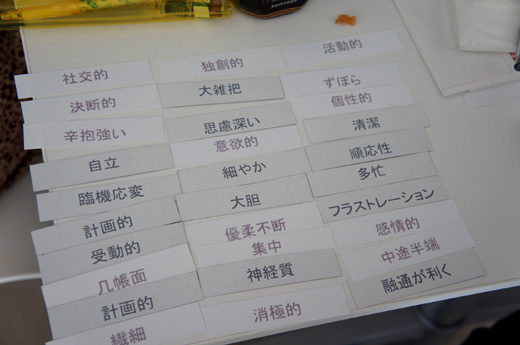 社交的
独創的
活動的
決断的
大雑把
ずぼら
辛抱強い
思慮深い
個性的
自立
意欲的
清潔
臨機応変
細やか
順応性
計画的
大胆
多忙
受動的
優柔不断
フラストレーション
几帳面
集中
感情的
計画的
神経質
中途半端
繊細
消極的
融通が利く